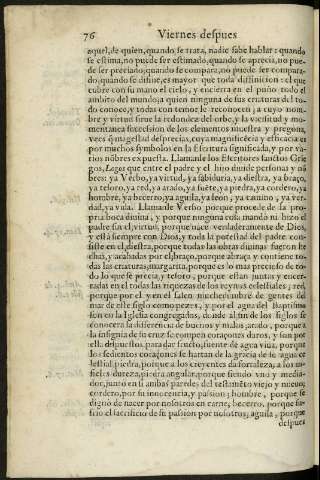 76 Viernes despues
aquel, de quien, quando se trata, nadie sabe hablar: quando
se estima, no puede ser estimado, quando se aprecia, no pue-
de ser preciado, quando se compara, no puede ser compara-
do, quando se difine, es mayor que toda difinicion: el que
cubre con su mano el cielo, y encierra en el puño todo el
ambito del mundo, a quien ninguna de sus criaturas del to-
do conoce, y todas con temor le reconocen, a cuyo nom-
bre y virtud sirue la redondez del orbe, y la vicissitud y mo-
mentanea succession de los elementos muestra y pregona,
magestad desprecias, cuya magnificencia y eficacia es
por muchos symbolos en la Escritura significada, y por va-
rios nõbres expuesta. Llamanle los Escritores sanctos Grie
gos, que entre el padre y el hijo diuide personas y nõ
bres: ya Verbo, ya virtud, ya sabiduria, ya diestra, ya braço,
ya tesoro, ya red, ya arado, ya fuẽte, ya piedra, ya cordero, ya
hombre, ya becerro, ya aguila, ya leon, ya camino, ya ver-
dad, ya vida. Llamanle Verbo porque procede de la pro-
pria boca diuina, y porque ninguna cosa mandò ni hizo el
padre sin el: virtud, porque nace verdaderamente de Dios,
y està siempre con Dios, y toda la potestad del padre con-
siste en el: diestra, porque todas las obras diuinas fueron he
chas, y acabadas por el: braço, porque abraça y contiene to-
das las criaturas: margarita, porque es lo mas precioso de to-
do lo que se precia, y tesoro, porque estan juntas y encer-
radas en el todas las riquezas de los reynos celestiales: red,
porque por el y en el salen muchedumbre de gentes del
mar de este siglo como peces, y por el agua del Baptismo
son en la Iglesia congregados, donde al fin de los siglos se
conocera la differencia de buenos y malos: arado, porque a
la insignia de su cruz se rompen coraçones duros, y son por
ella dispuestos para dar fructo: fuente de agua viua, porque
los sedientos coraçones se hartan de la gracia de su agua ce
lestial: piedra, porque a los creyentes da fortaleza, a los in-
fieles dureza, piedra angular, porque siendo vno y media-
dor, juntò en si ambas paredes del testamẽto viejo y nueuo:
cordero, por su innocencia, y passion: hombre, porque se
dignò de nacer por nosotros en carne, becerro, porque su-
frio el sacrificio de su passion por nosotros: aguila, porque
despues